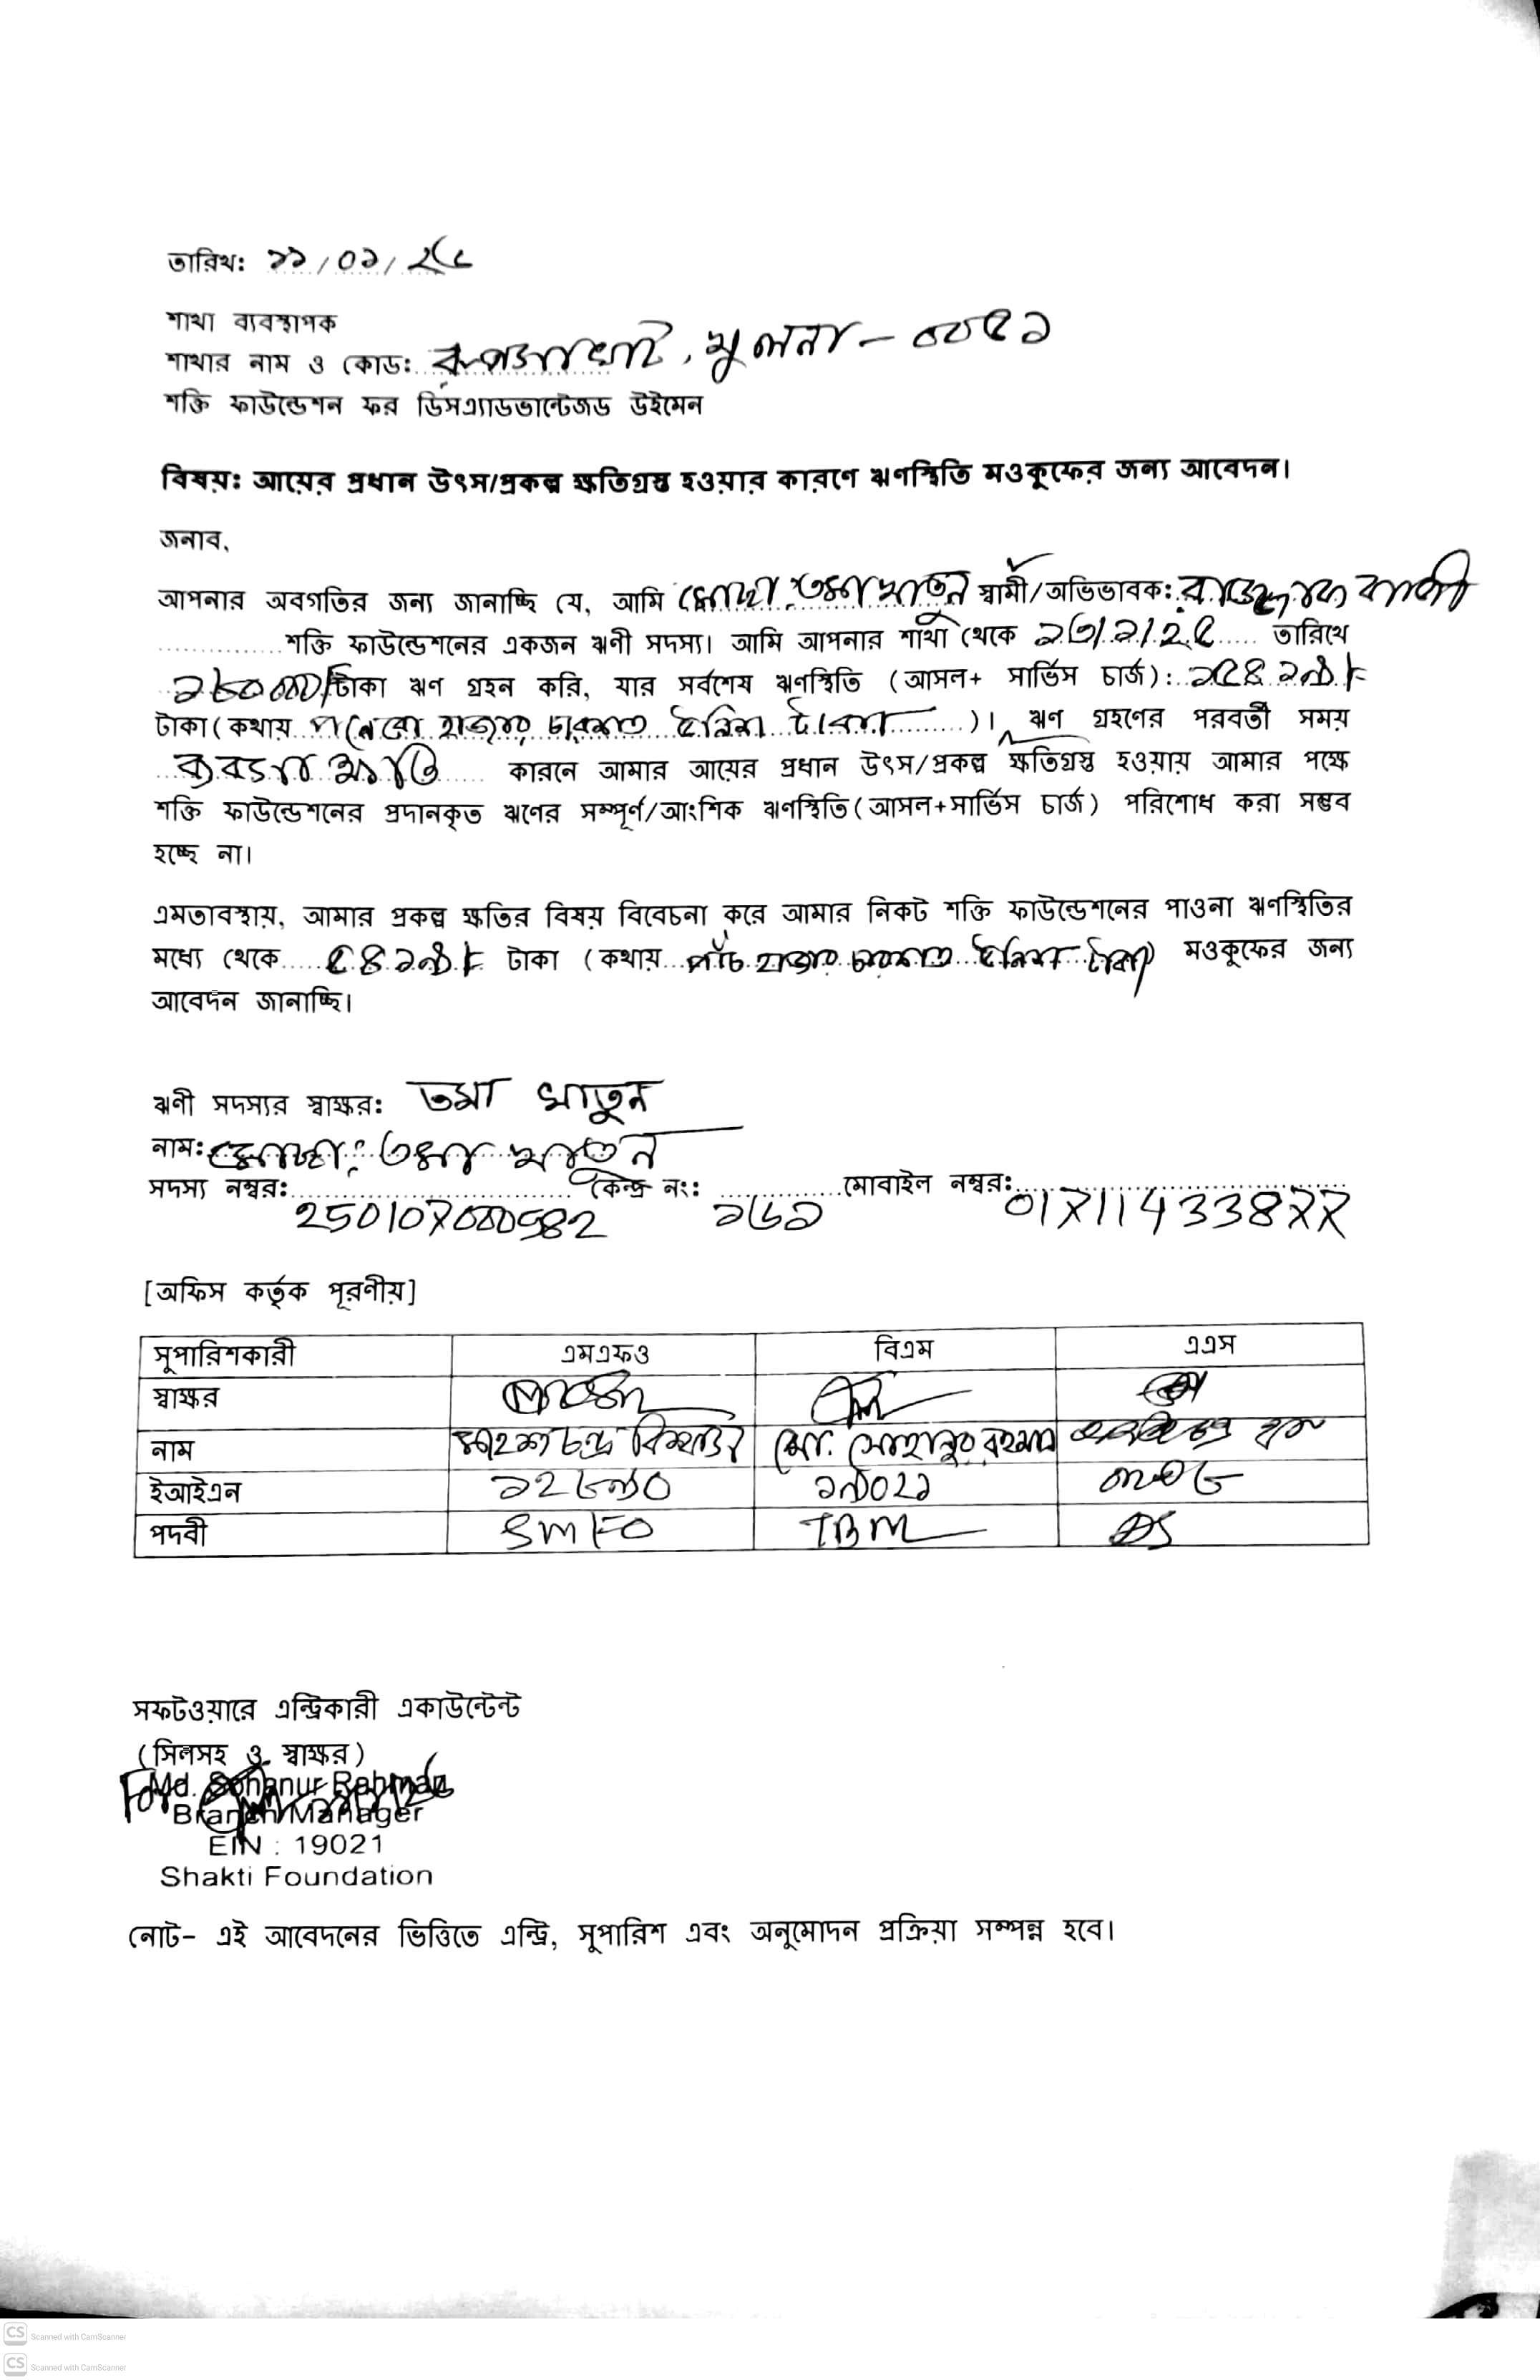 তারিখ: ১১/০১/২৬
শাখা ব্যবস্থাপক
শাখার নাম ও কোড: রূপসাঘাট, খুলনা - ০০৫১
শক্তি ফাউন্ডেশন ফর ডিসএ্যাডভান্টেজড উইমেন
বিষয়: আয়ের প্রধান উৎস/প্রকল্প ক্ষতিগ্রস্ত হওয়ার কারণে ঋণস্থিতি মওকুফের জন্য আবেদন।
জনাব,
আপনার অবগতির জন্য জানাচ্ছি যে, আমি মোছা: তমা খাতুন স্বামী/অভিভাবক:
শক্তি ফাউন্ডেশনের একজন ঋণী সদস্য। আমি আপনার শাখা থেকে ১৩/১/২৫ তারিখে
টাকা ঋণ গ্রহন করি, যার সর্বশেষ ঋণস্থিতি (আসল+ সার্ভিস চার্জ): ১৫৪১৯৮
টাকা (কথায় পনেরো হাজার চারশত উনিশ টাকা )। ঋণ গ্রহণের পরবর্তী সময়
ব্যবসা ক্ষতি কারনে আমার আয়ের প্রধান উৎস/প্রকল্প ক্ষতিগ্রস্ত হওয়ায় আমার পক্ষে
শক্তি ফাউন্ডেশনের প্রদানকৃত ঋণের সম্পূর্ণ/আংশিক ঋণস্থিতি(আসল+সার্ভিস চার্জ) পরিশোধ করা সম্ভব
হচ্ছে না।
এমতাবস্থায়, আমার প্রকল্প ক্ষতির বিষয় বিবেচনা করে আমার নিকট শক্তি ফাউন্ডেশনের পাওনা ঋণস্থিতির
মধ্যে থেকে ৫৪১৯৮ টাকা (কথায় পাঁচ হাজার চারশত উনিশ টাকা) মওকুফের জন্য
আবেদন জানাচ্ছি।
ঋণী সদস্যর স্বাক্ষর: তমা খাতুন
নাম: মোছা: তমা খাতুন
সদস্য নম্বর: কেন্দ্র নং: মোবাইল নম্বর:
250107000582 ১৬১ 01711433877
[অফিস কর্তৃক পূরণীয়]
সুপারিশকারী এমএফও বিএম এএস
স্বাক্ষর
নাম মহেশ চন্দ্র বিশ্বাস মো. সোহানুর রহমান
ইআইএন ১২৮৯০ ১৯০২১
পদবী SMFO TBM AS
সফটওয়ারে এন্ট্রিকারী একাউন্টেন্ট
(সিলসহ ও স্বাক্ষর)
For Md. Sohanur Rahman
Branch Manager
EIN : 19021
Shakti Foundation
নোট- এই আবেদনের ভিত্তিতে এন্ট্রি, সুপারিশ এবং অনুমোদন প্রক্রিয়া সম্পন্ন হবে।
CS Scanned with CamScanner
CS Scanned with CamScanner